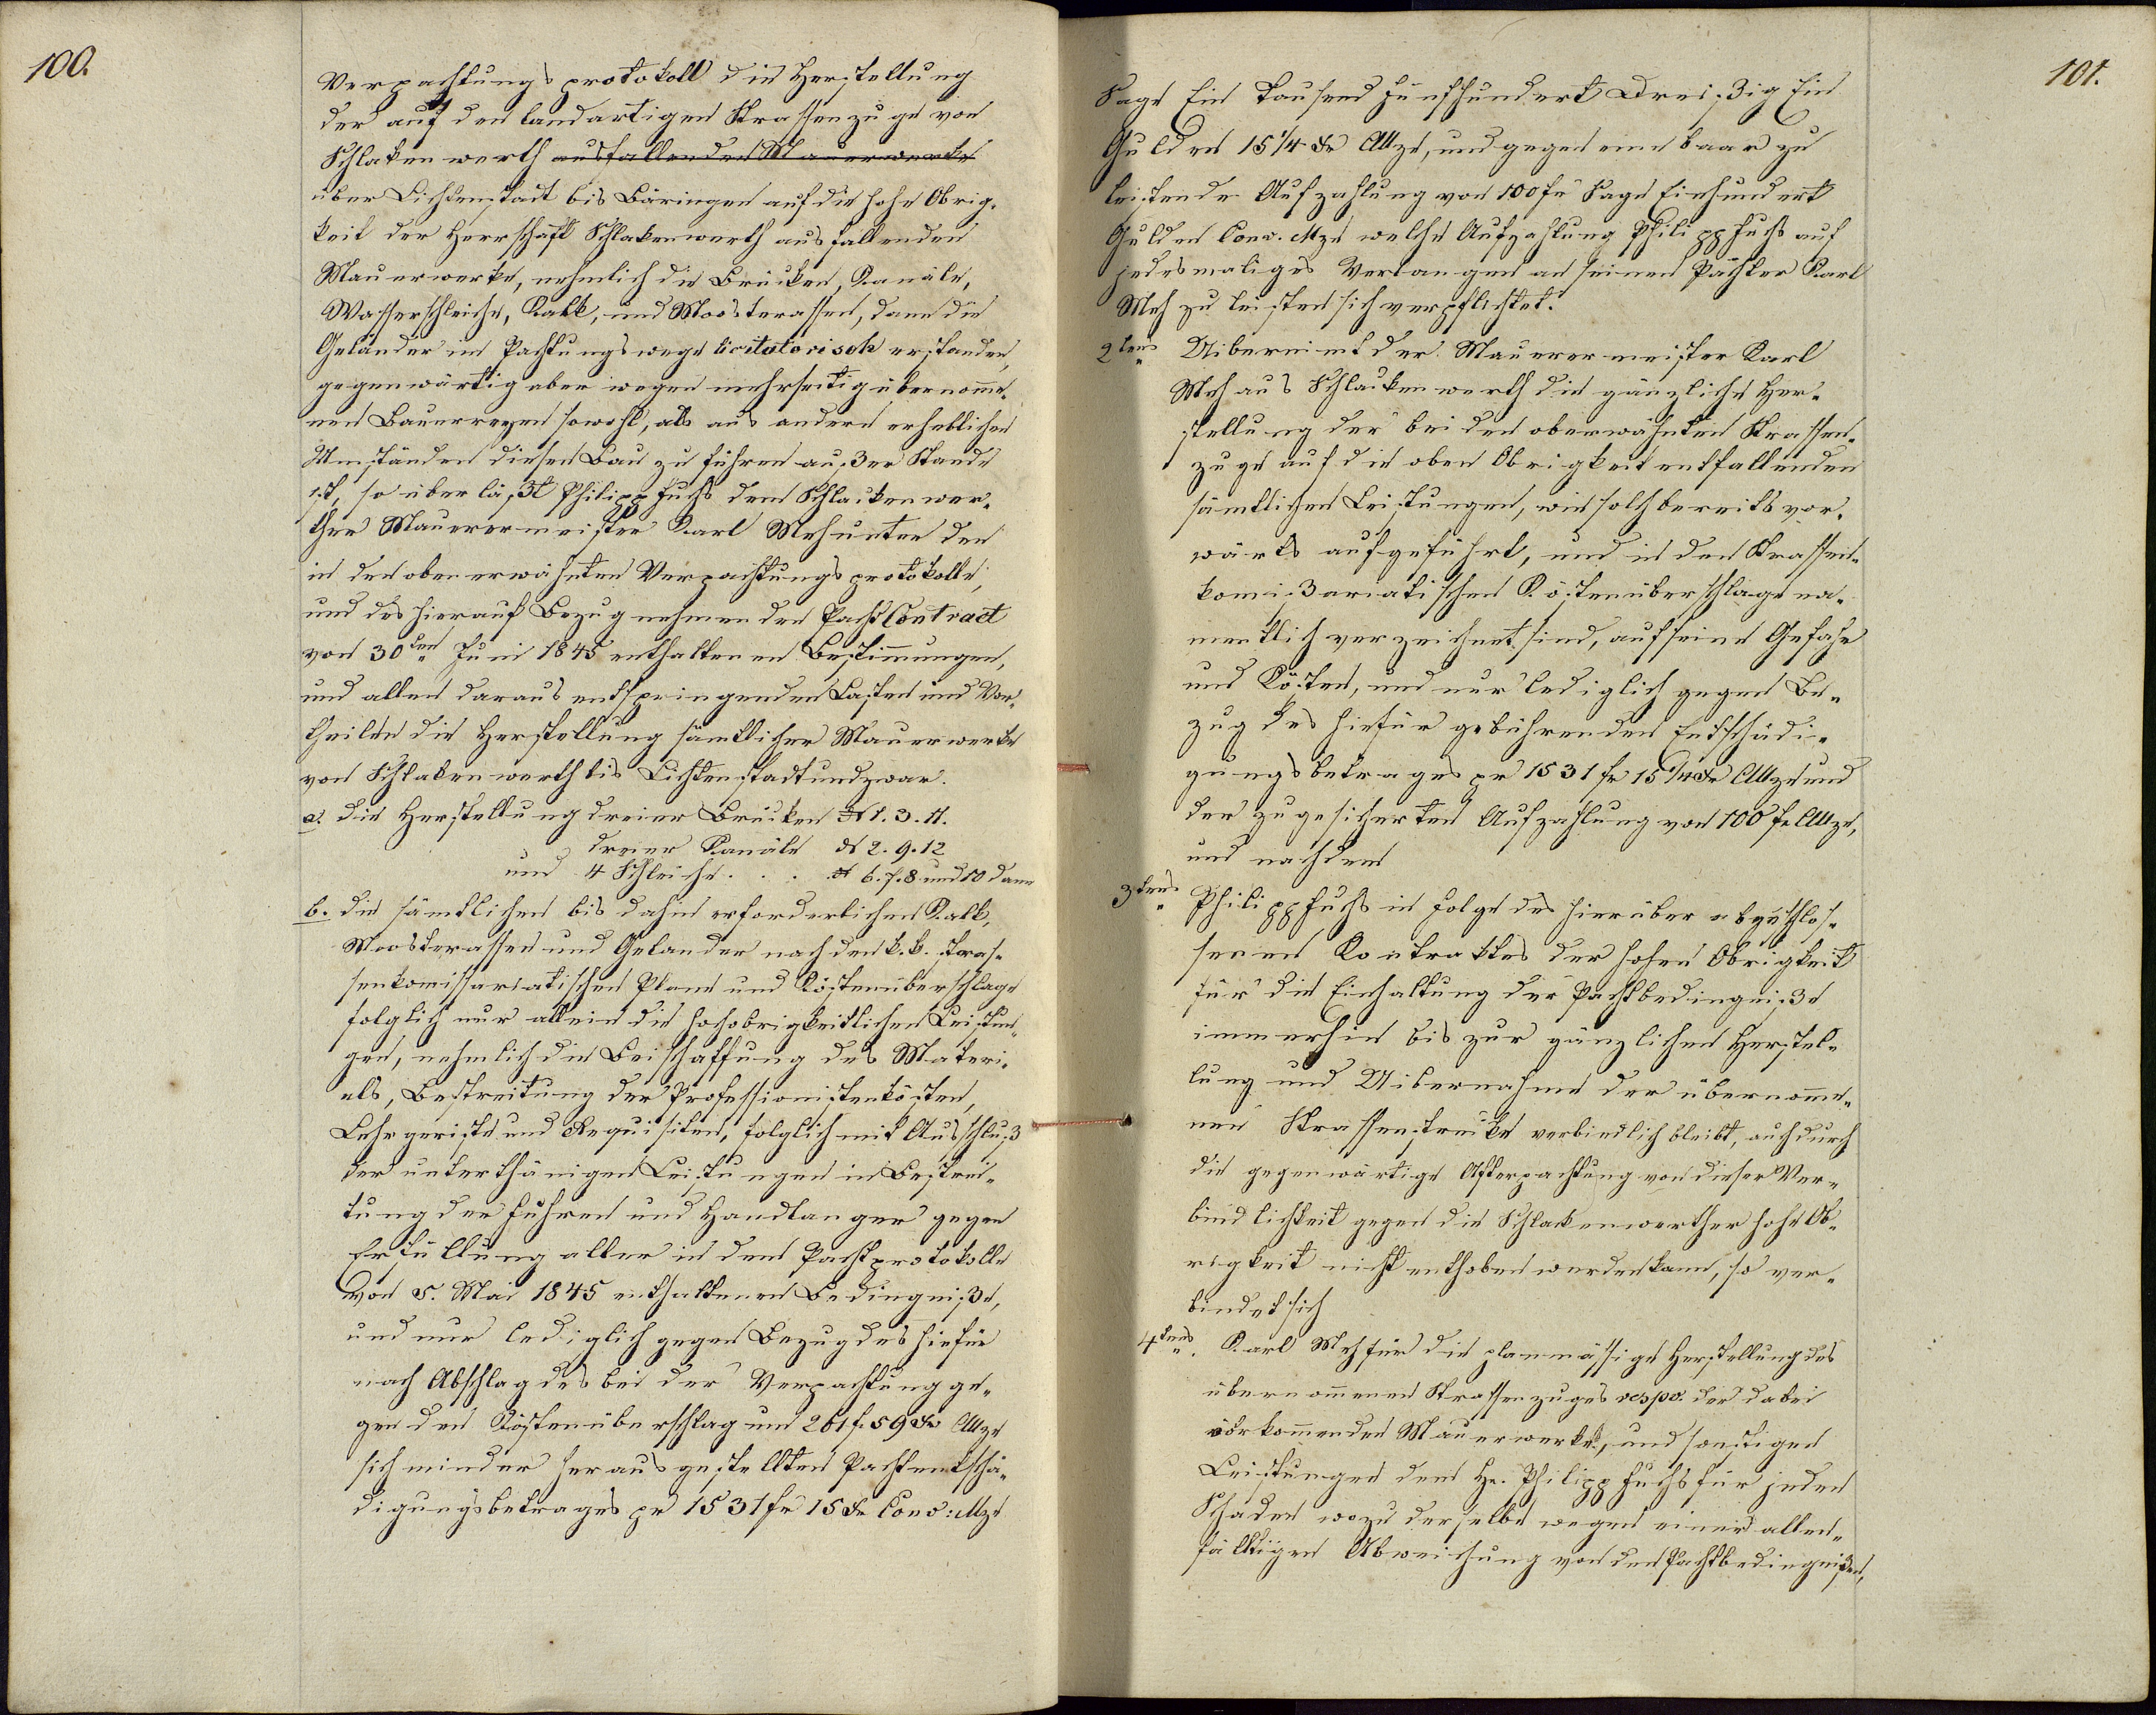 100.
Verpachtungsprotokoll die Herstellung
der auf den landartigen Strassenzuge von
Schlakenwerth ausfallenden Mauerwerke
über Lichtenstadt bis Bäringen auf die hohe Obrig-
keit der Herrschaft Schlakenwerth ausfallenden
Mauerwerke, nehmlich die Brücken, Kanäle,
Wasserschleiche, Kalk, und Moosterassen, dann die
Geländer im Pachtungswege licitatorisch erstanden,
gegenwärtig aber wegen mehrseitig übernomme-
nen Bauereyen sowohl, als aus andern erheblichen
Umständen diesen Bau zu führen außer Stande
ist, so überläßt Philipp Fuchs dem Schlakenwer-
ther Mauerermeister Karl Meh unter den
in den oben erwähnten Verpachtungsprotokolle,
und des hierauf Bezug nehmenden Pacht Contract
von 30ten Juni 1845 enthaltenen Bestimmungen,
und allen daraus entspringenden Lasten und Vor-
theilen die Herstellung sämtlicher Mauerwerke
von Schlakenwerth bis Lichtenstadt und zwar.
a. die Herstellung dreier Brücken N 1. 3. 11.
dreier Kanäle N 2. 9. 12
und 4 Schleiche . . . N 6. 7. 8 und 10 dann
b. die sämtlichen bis dahin erforderlichen Kalk,
Moosterassen und Gelander nach den k. k. stras-
senkomissariatischen Plane und Kostenüberschlage
folglich nur allein die hochobrigkeitlichen Leistun-
gen, nehmlich die Beischaffung des Materi-
als, Bestreitung der Professionistenkösten,
Lehrgeriste und Requisiten, folglich mit Ausschluß
der unterthänigen Leistungen in Bestrei-
tung der Fuhren und Handlanger gegen
Erfüllung aller in dem Pachtprotokolle
von 5. Mai 1845 enthaltenen Bedingniße,
und nur lediglich gegen Bezug des hiefür
nach Abschlag des bei der Verpachtung ge-
gen den Köstenüberschlag um 261 f. 59 xr CMze
sich minder herausgestellten Pachtentschä-
digungsbetrages pr 1531 fr 15 xr Conv: Mze
101.
Sage Ein Tausend Fünfhundert Dreißig Ein
Gulden 15 1/4 xr CMze, und gegen eine baar zu
leistende Aufzahlung von 100 fr Sage Einhundert
Gulden Conv. Mze welche Aufzahlung Philipp Fuchs auf
jedesmaliges Verlangen an seinen Pächter Karl
Meh zu leisten sich verpflichtet.
2tens Uibernimt der Mauerermeister Karl
Meh aus Schlakenwerth die gänzliche Her-
stellung der bei den oberwähnten Strassen-
zuge auf die oben Obrigkeit entfallenden
sämtlichen Leistungen, wie solch bereits vor-
wärts aufgeführt, und in den Strassen-
komißariatischen Köstenüberschlage na-
mentlich verzeichnet sind, auf seine Gefahr
und Kösten, und nur lediglich gegen Be-
zug des hiefür gebührenden Entschädi-
gungsbetrages pr 1531 fr 15 1/4 xr CMze und
der zugesicherten Aufzahlung von 100 fr CMze,
und nachdem
3tens Philipp Fuchs in Folge des hierüber abgeschlos-
senen Kontraktes der hohen Obrigkeit
für die Einhaltung der Pachtbedingniße
immerhin bis zur gänzlichen Herstel-
lung und Uibernahme der übernomme-
nen Strassenstrecke verbindlich bleibt, auch durch
die gegenwärtige Afterpachtung von dieser Ver-
bindlichkeit gegen die Schlakenwerther hohe Ob-
rigkeit nicht enthoben werden kann, so ver-
bindet sich
4tens. Karl Meh für die planmässige Herstellung des
übernommenen Strassenzuges respv. der dabei
vorkommenden Mauerwerke, und sonstigen
Leistungen dem Hr. Philipp Fuchs für jeden
Schaden wozu derselbe wegen einer allen-
fälligen Abweichung von den Pachtbedingnißen,